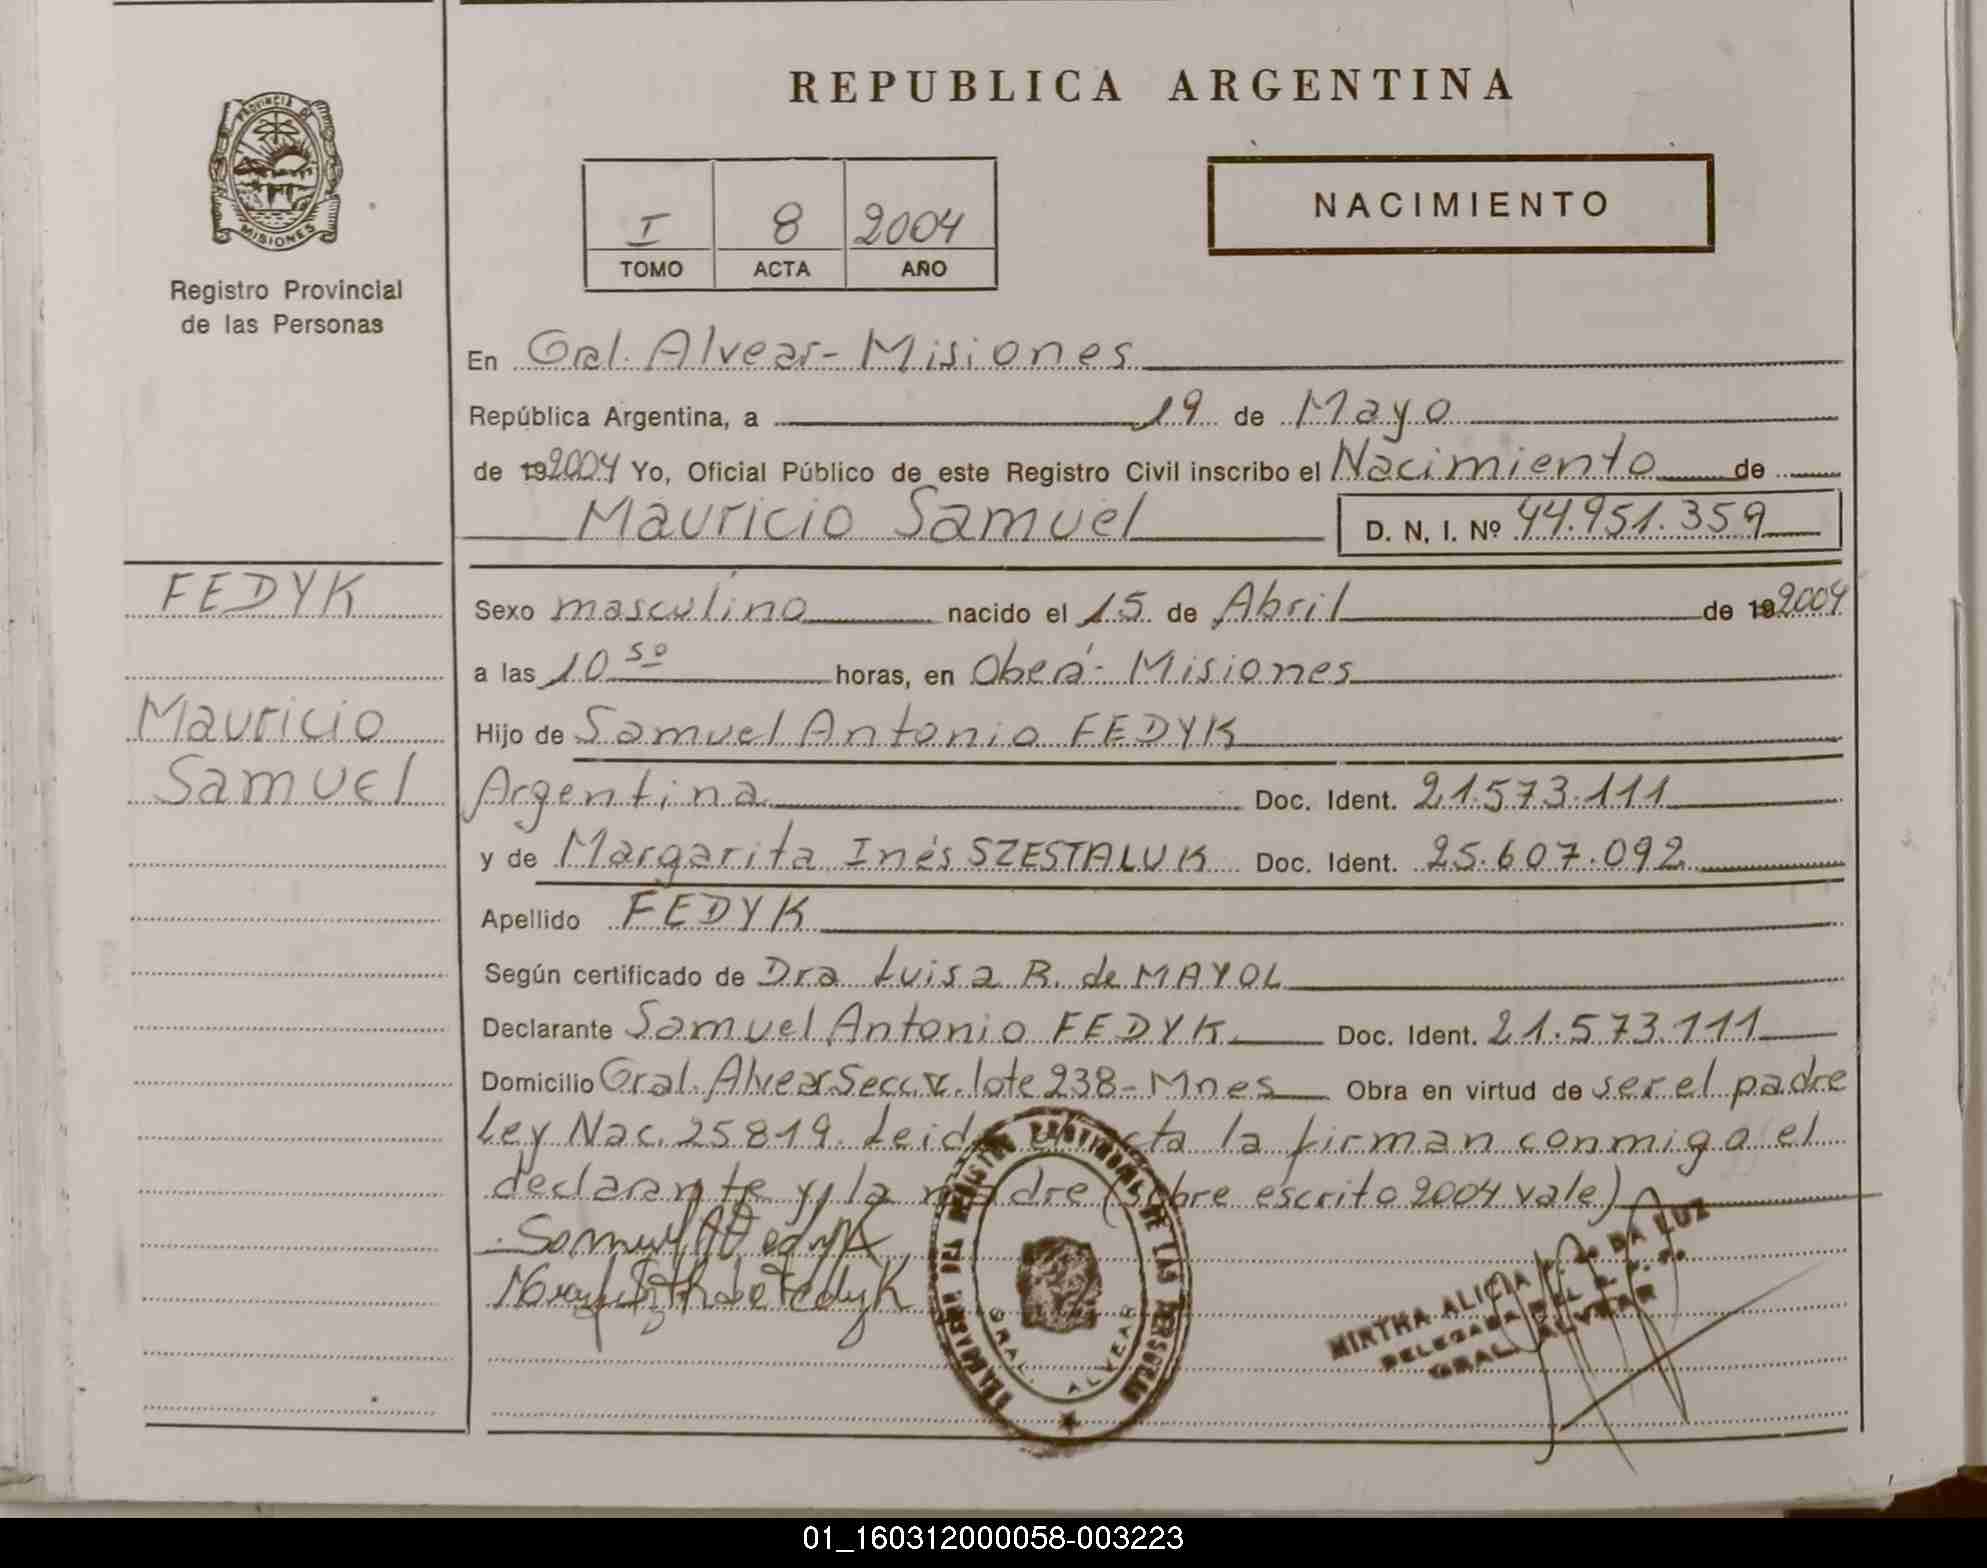 REPUBLICA ARGENTINA
PROVINCIA DE
MISIONES
Registro Provincial
de las Personas
I 8 2004
TOMO ACTA AÑO
NACIMIENTO
En Gral. Alvear - Misiones
República Argentina, a 19 de Mayo
de 192004 Yo, Oficial Público de este Registro Civil inscribo el Nacimiento de
Mauricio Samuel D. N. I. Nº 44.951.359
FEDYK
Mauricio
Samuel
Sexo masculino nacido el 15 de Abril de 192004
a las 10 50 horas, en Oberá - Misiones
Hijo de Samuel Antonio FEDYK
Argentina Doc. Ident. 21.573.111
y de Margarita Inés SZESTALUK Doc. Ident. 25.607.092
Apellido FEDYK
Según certificado de Dra Luisa R. de MAYOL
Declarante Samuel Antonio FEDYK Doc. Ident. 21.573.111
Domicilio Gral. Alvear Secc. V. lote 238 - Mnes Obra en virtud de ser el padre
Ley Nac. 25819. Leida acta la firman conmigo el
declarante y la madre (sobre escrito 2004 vale)
DEL REGISTRO PROVINCIAL DE LAS PERSONAS
GRAL. ALVEAR
MIRTHA ALICIA DA LUZ
DELEGADA DEL
GRAL. ALVEAR
01_160312000058-003223